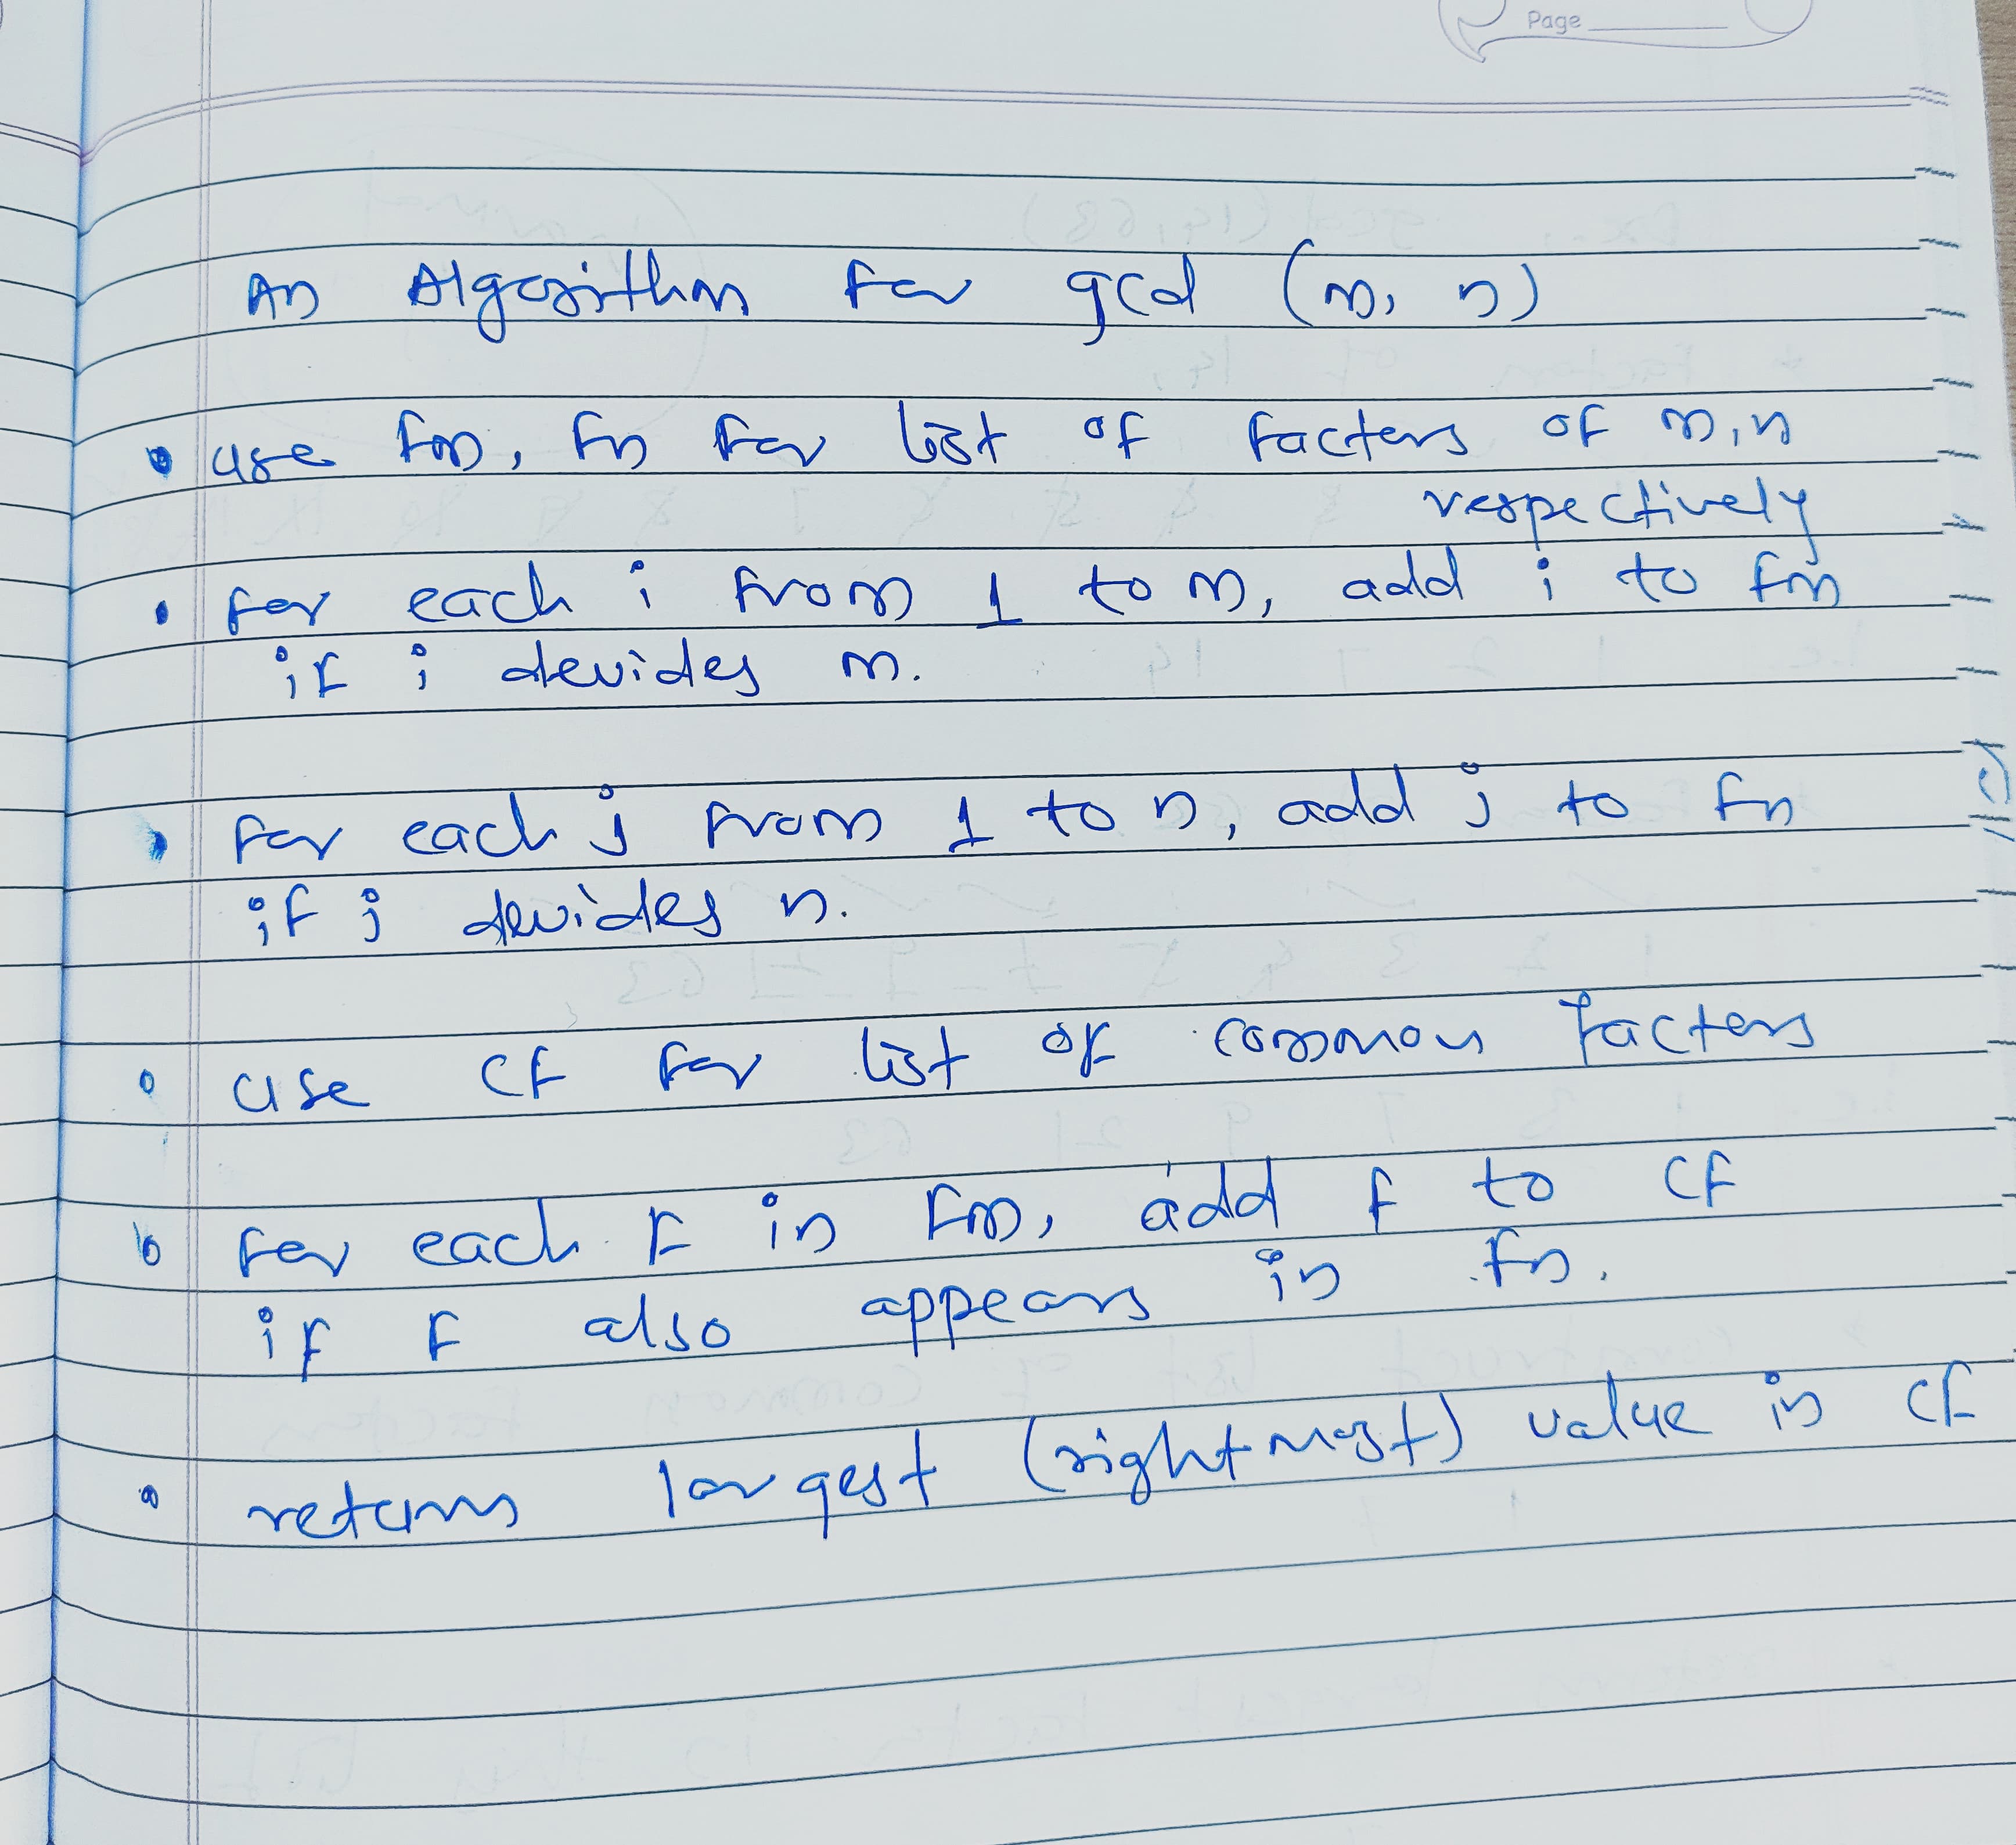 Page
An Algorithm for gcd (m, n)
• use fm, fn for list of factors of m, n
respectively
• for each i from 1 to m, add i to fm
if i devides m.
• for each j from 1 to n, add j to fn
if j devides n.
• use cf for list of common factors
• for each f in fm, add f to cf
if f also appears in fn.
• returns largest (rightmost) value in cf